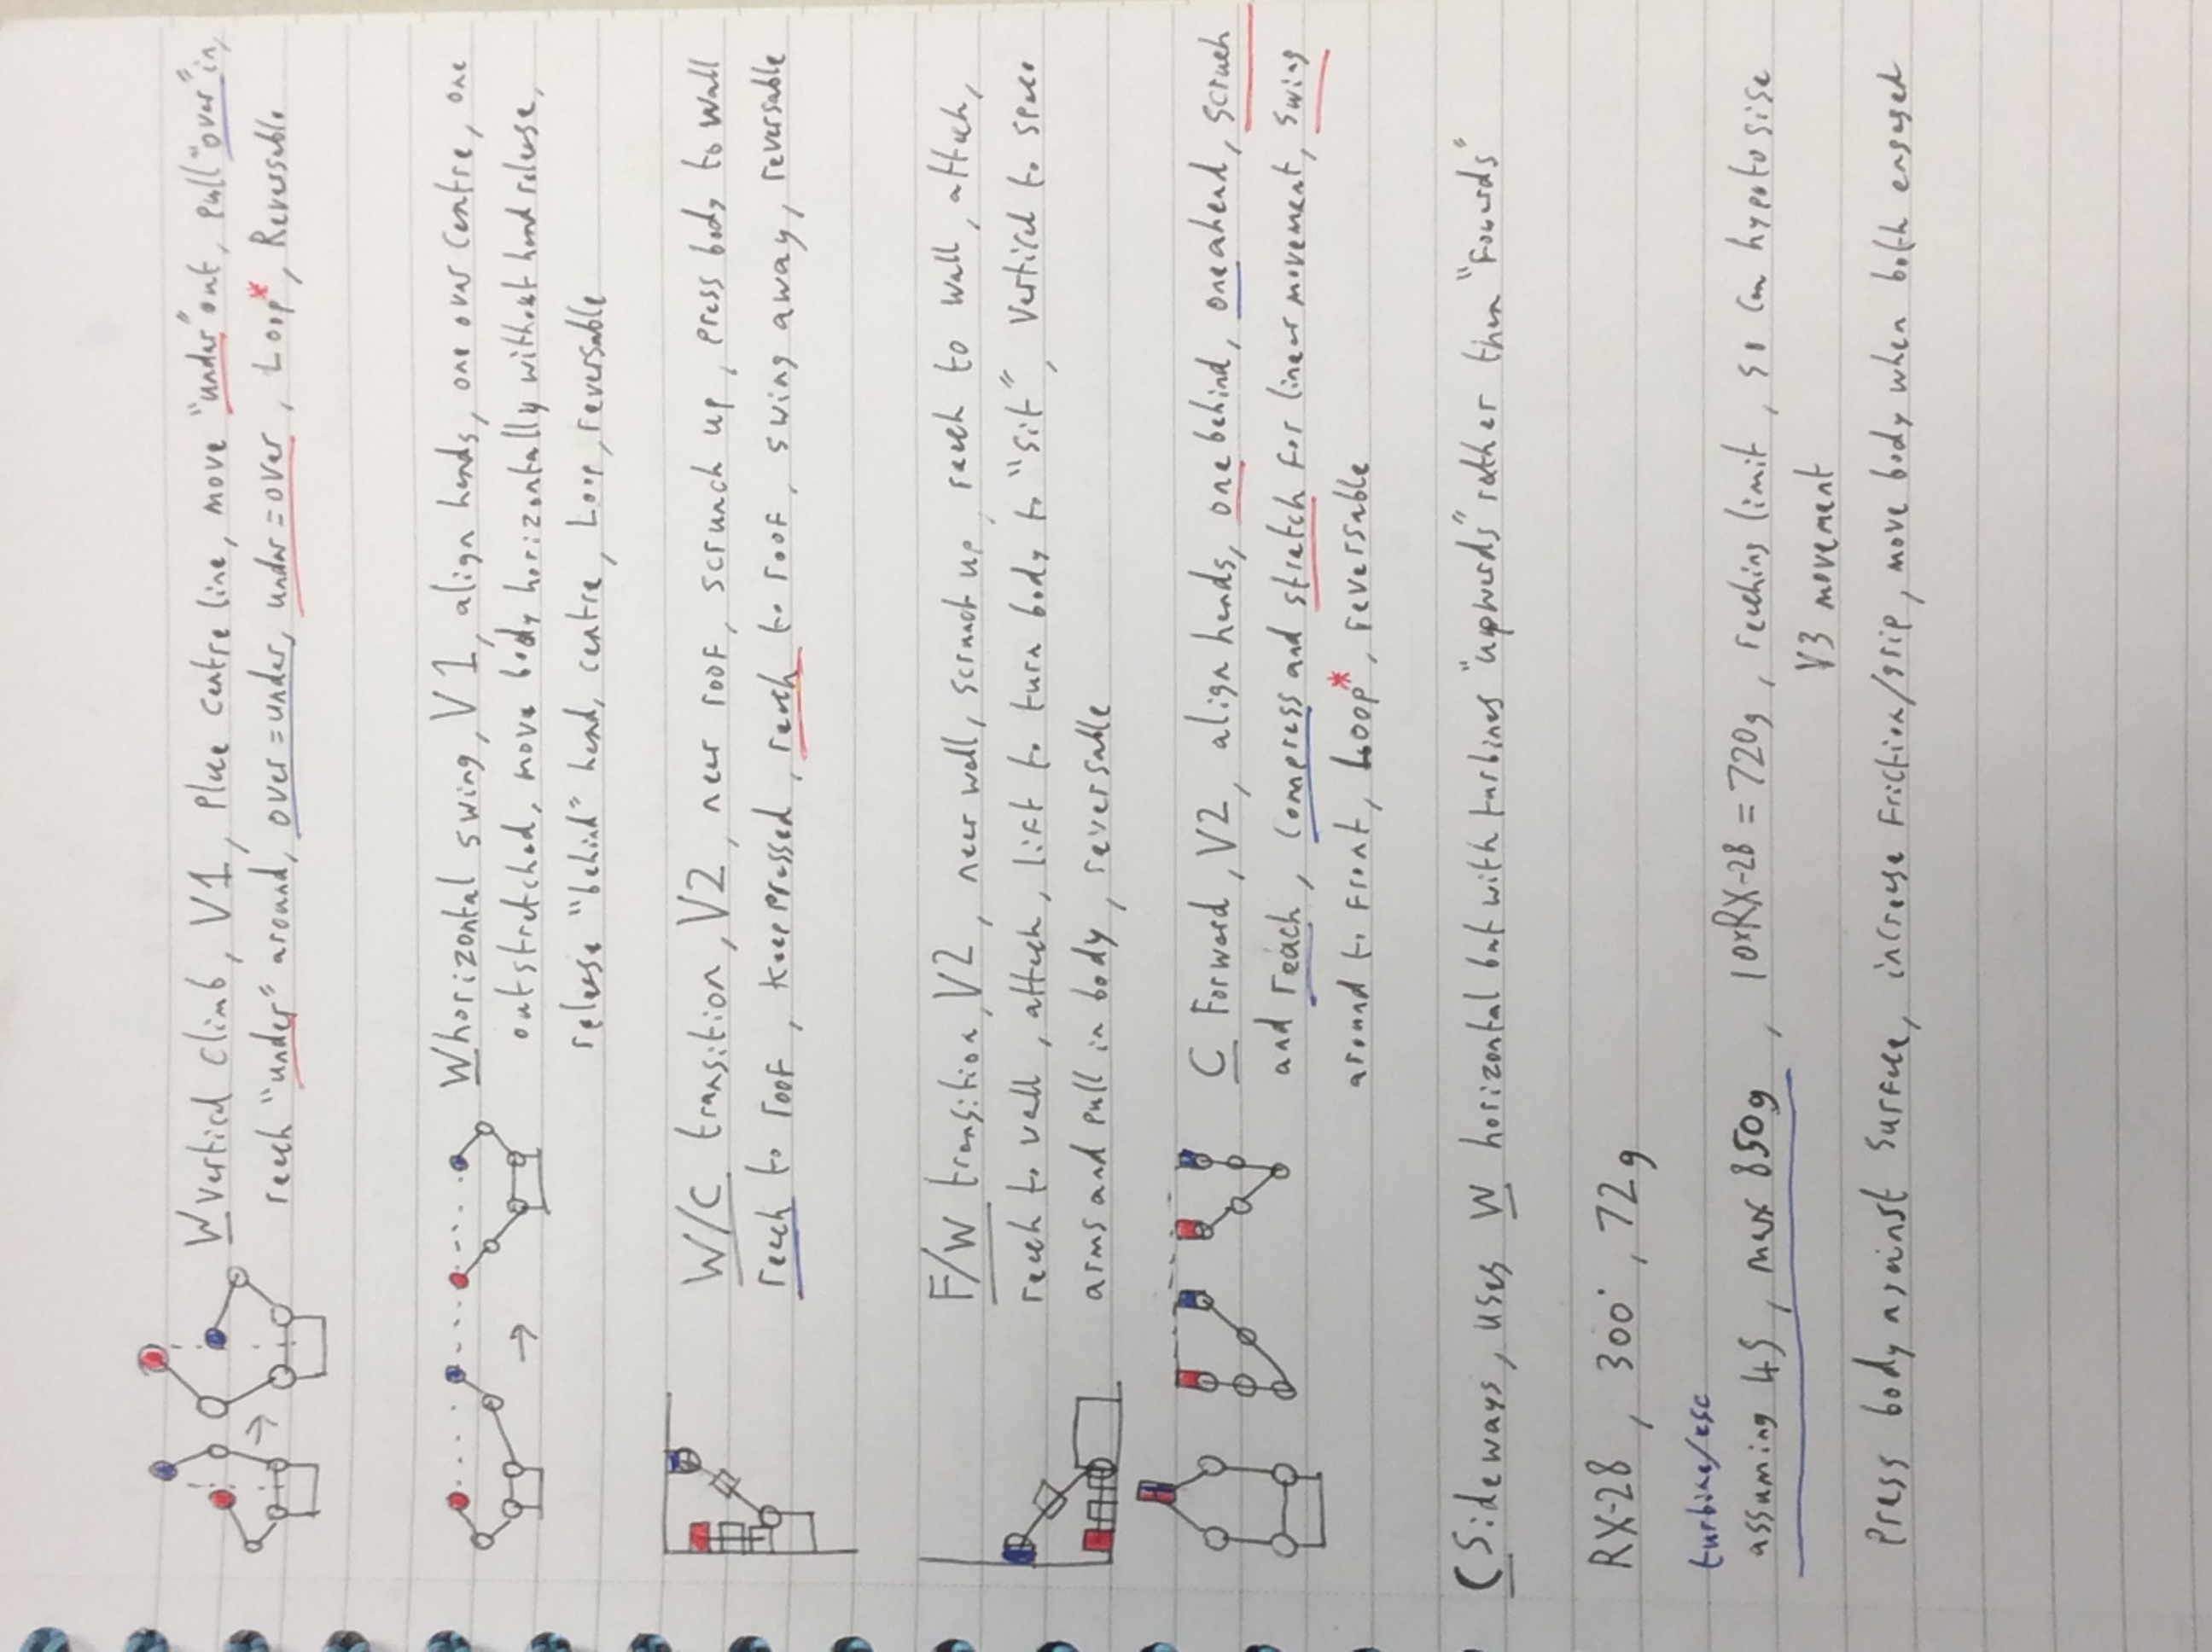 W vertical climb, V1, Place centre line, move "under" out, pull "over" in,
reach "under" around, over = under, under = over, Loop*, Reversable
W horizontal swing, V1, align hands, one over centre, one
outstretched, move body horizontally without hand release,
release "behind" hand, centre, Loop, reversable
W/C transition, V2, near roof, scrunch up, press body to wall
reach to roof, keep pressed, reach to roof, swing away, reversable
F/W transition, V2, near wall, scrunch up, reach to wall, attach,
reach to wall, attach, lift to turn body to "sit", Vertical to space
arms and pull in body, reversable
C Forward, V2, align hands, one behind, one ahead, scruch
and reach, compress and stretch for linear movement, swing
around to front, Loop*, reversable
C Sideways, uses W horizontal but with turbines "upwards" rather than "Fowards"
RX-28, 300°, 72g
turbine/esc
assuming 4S, max 850g, 10xRX-28 = 720g, reaching limit, so can hypotosise
V3 movement
Press body against surface, increase friction/grip, move body when both engaged